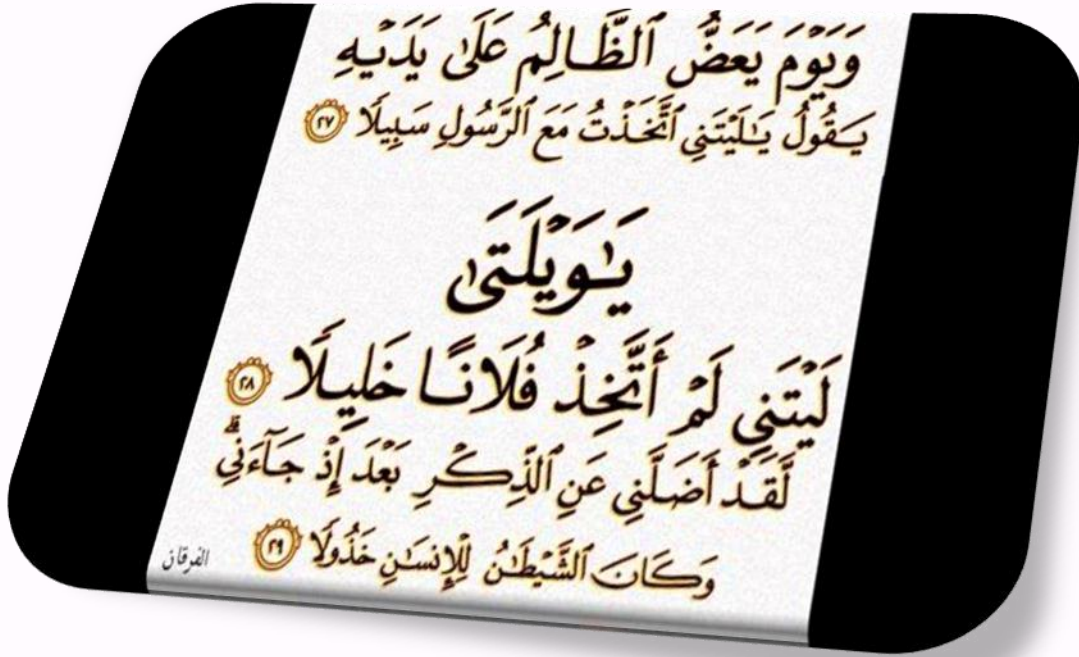 وَيَوْمَ يَعَضُّ ٱلظَّالِمُ عَلَىٰ يَدَيْهِ
يَقُولُ يَـٰلَيْتَنِى ٱتَّخَذْتُ مَعَ ٱلرَّسُولِ سَبِيلًا ٢٧
يَـٰوَيْلَتَىٰ
لَيْتَنِى لَمْ أَتَّخِذْ فُلَانًا خَلِيلًا ٢٨
لَّقَدْ أَضَلَّنِى عَنِ ٱلذِّكْرِ بَعْدَ إِذْ جَآءَنِىۗ
وَكَانَ ٱلشَّيْطَـٰنُ لِلْإِنسَـٰنِ خَذُولًا ٢٩
الفرقان